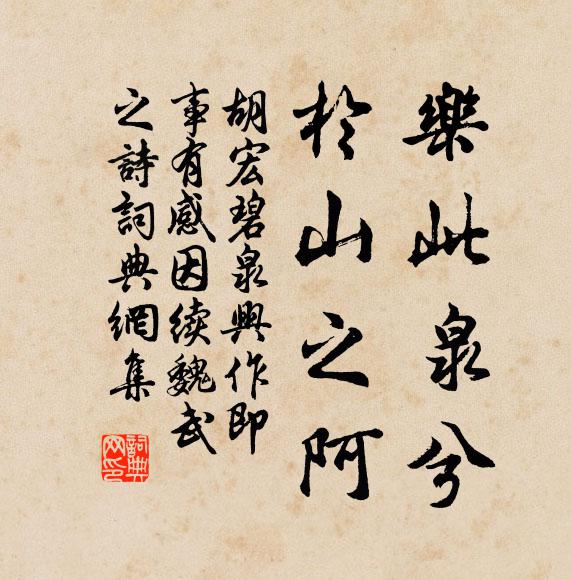 樂此泉兮
於山之阿
胡宏碧泉興作即
事有感因续魏武
之詩詞典網集
詞典网印